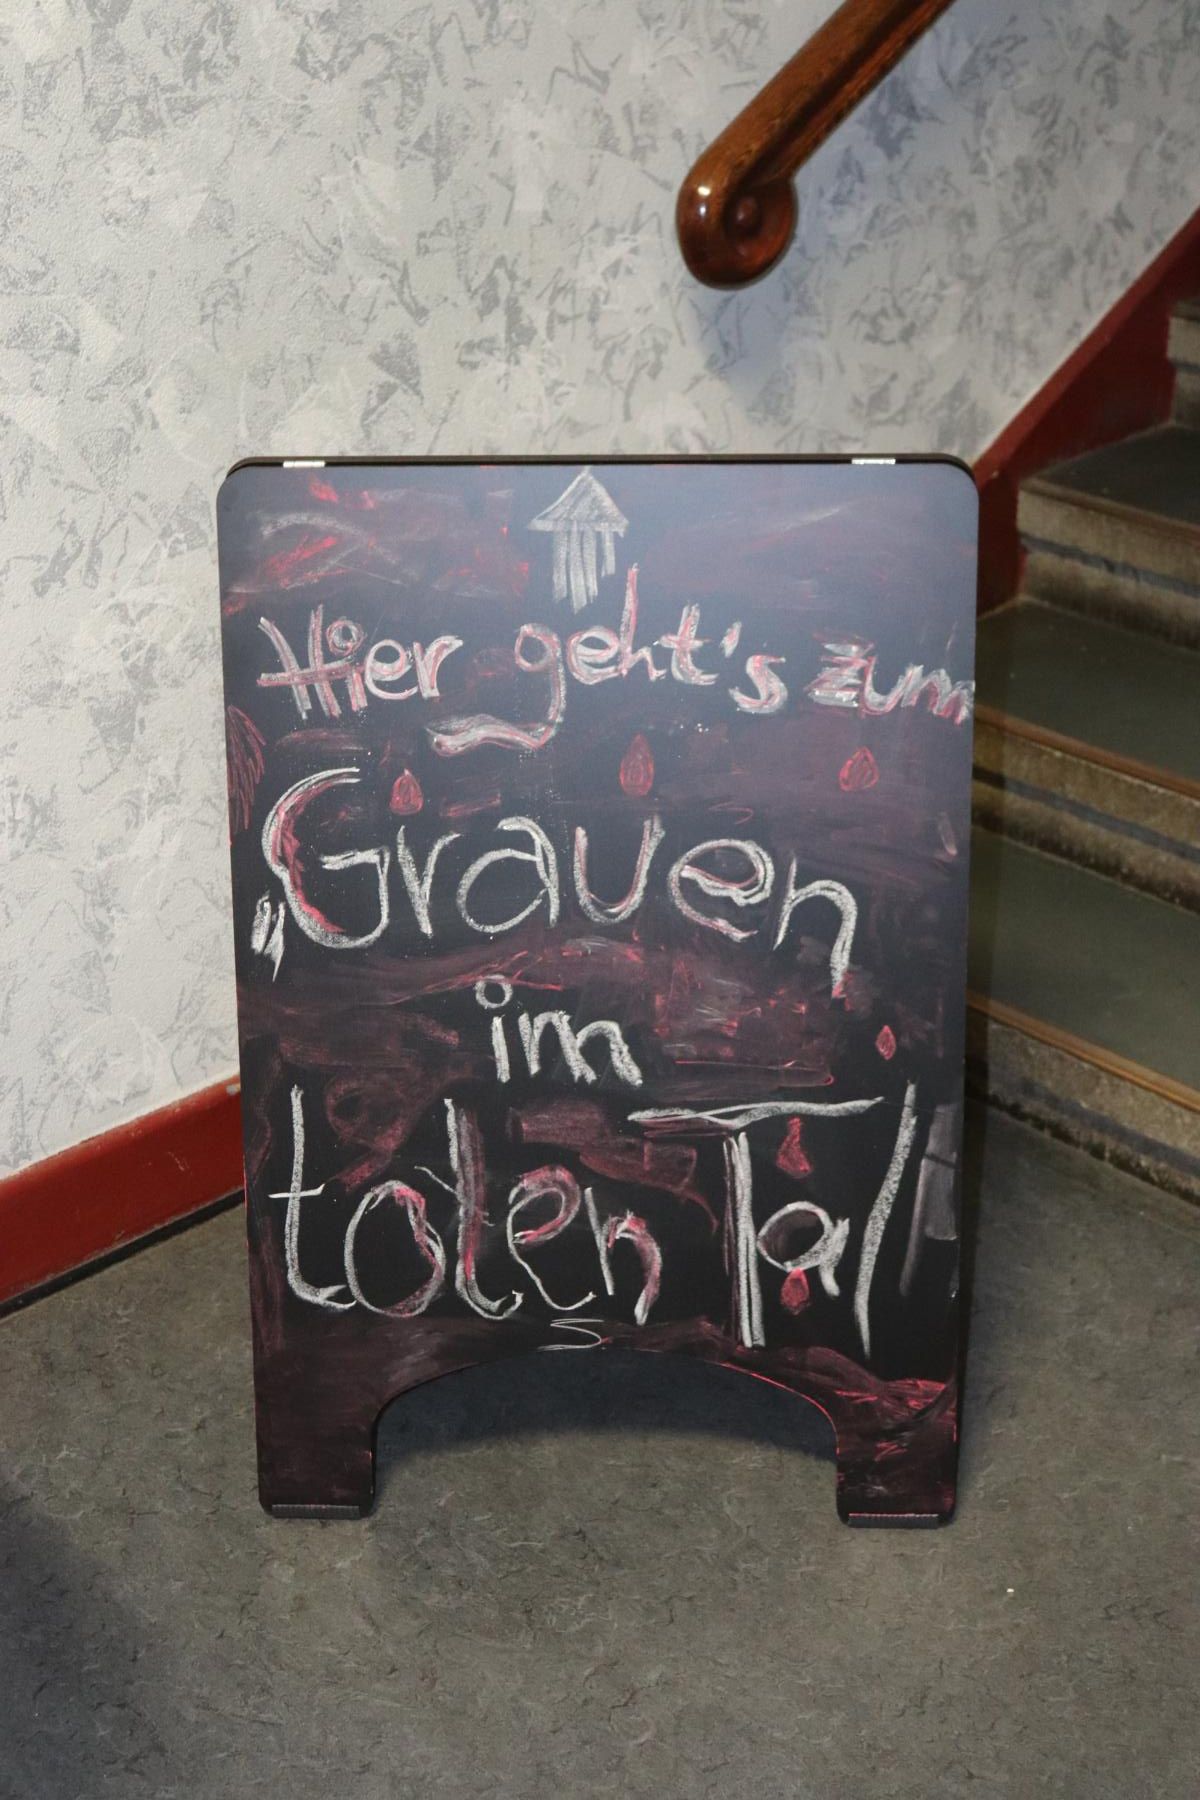 Hier geht's zum
„Grauen
im
toten Tal